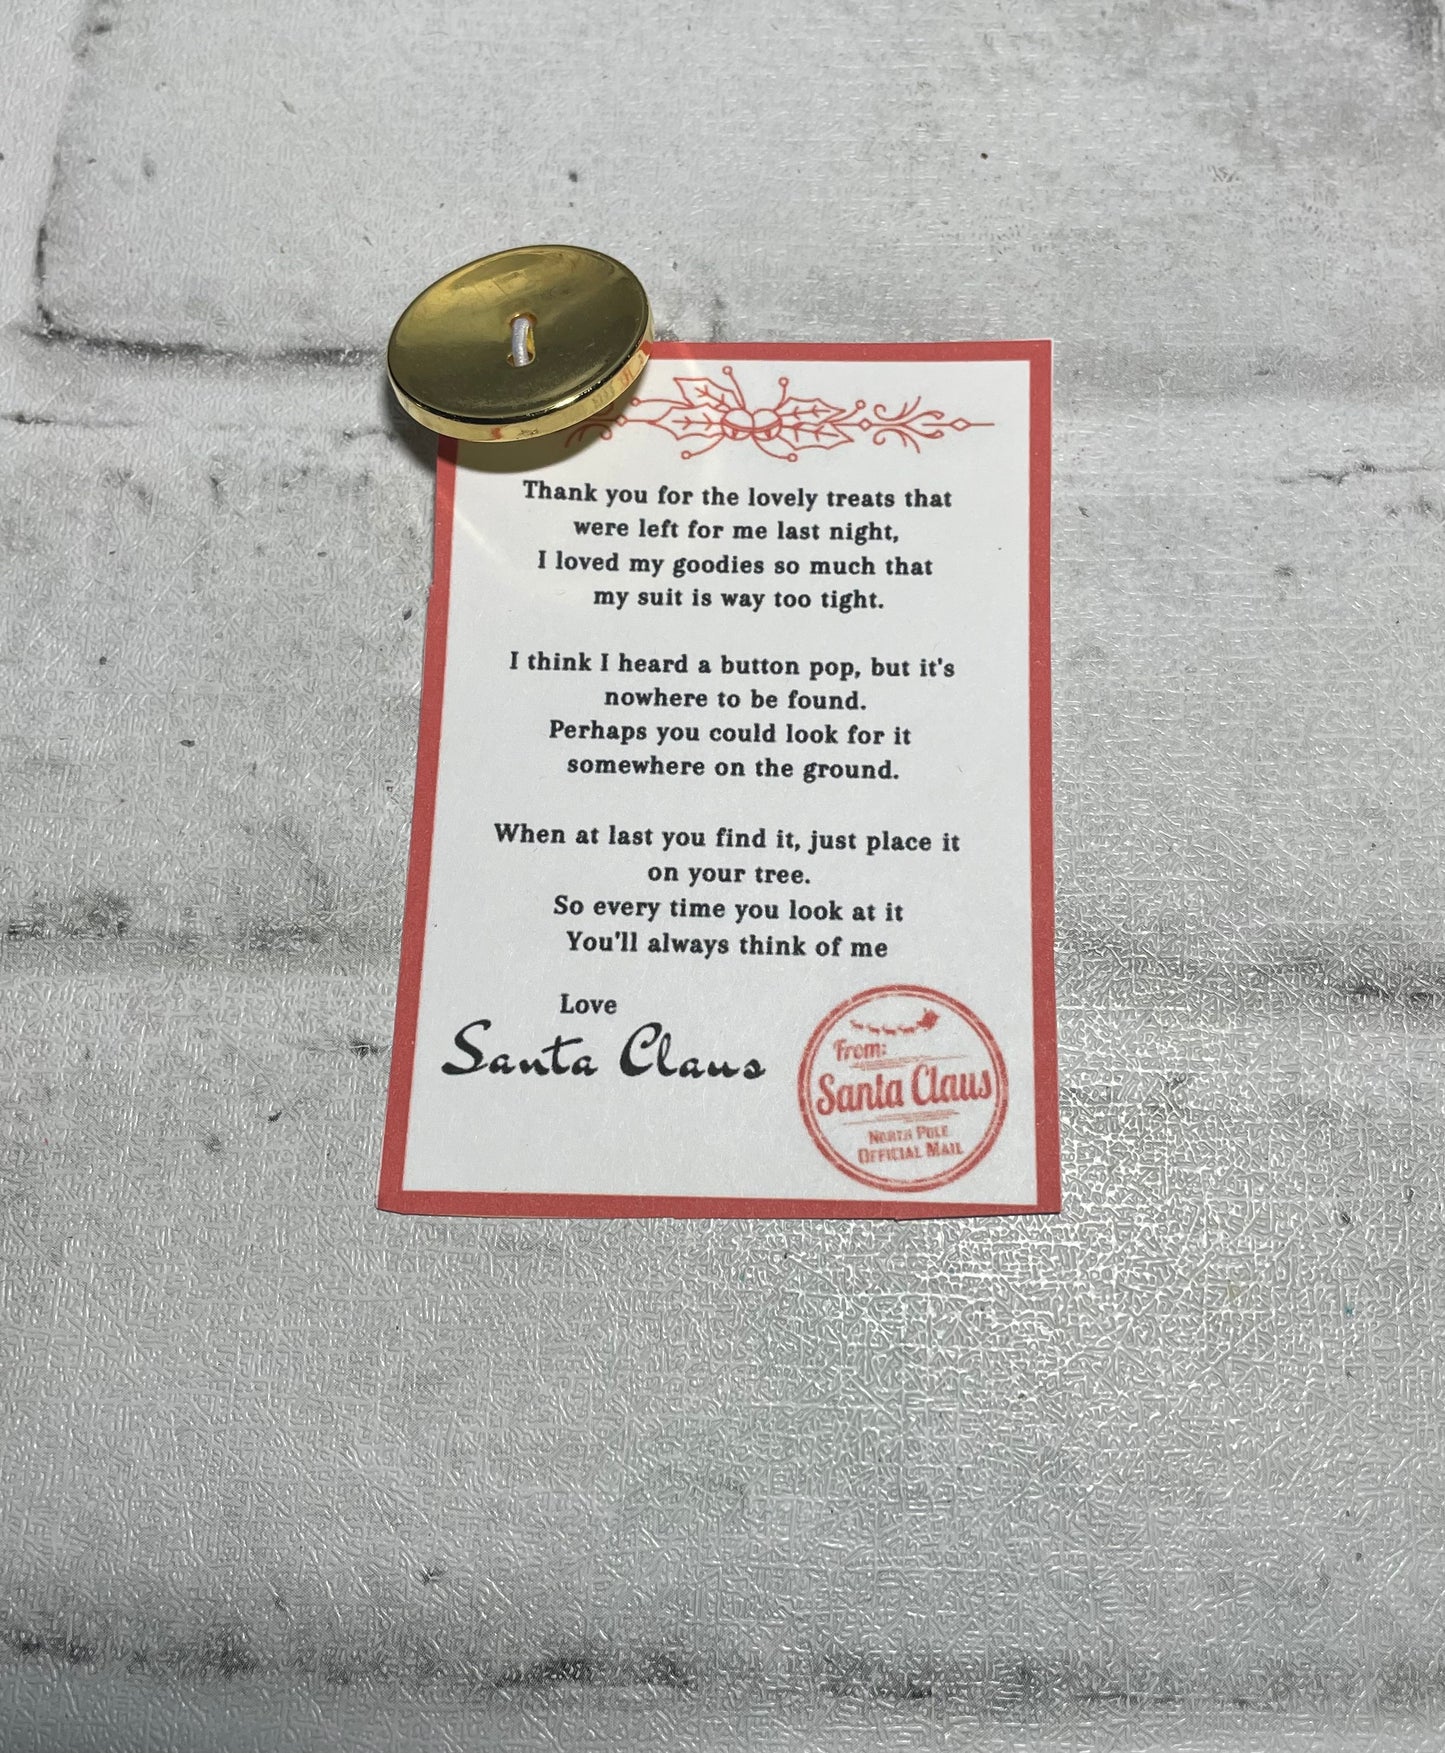 Thank you for the lovely treats that
were left for me last night,
I loved my goodies so much that
my suit is way too tight.
I think I heard a button pop, but it's
nowhere to be found.
Perhaps you could look for it
somewhere on the ground.
When at last you find it, just place it
on your tree.
So every time you look at it
You'll always think of me
Love
Santa Claus
From:
Santa Claus
North Pole
Official Mail